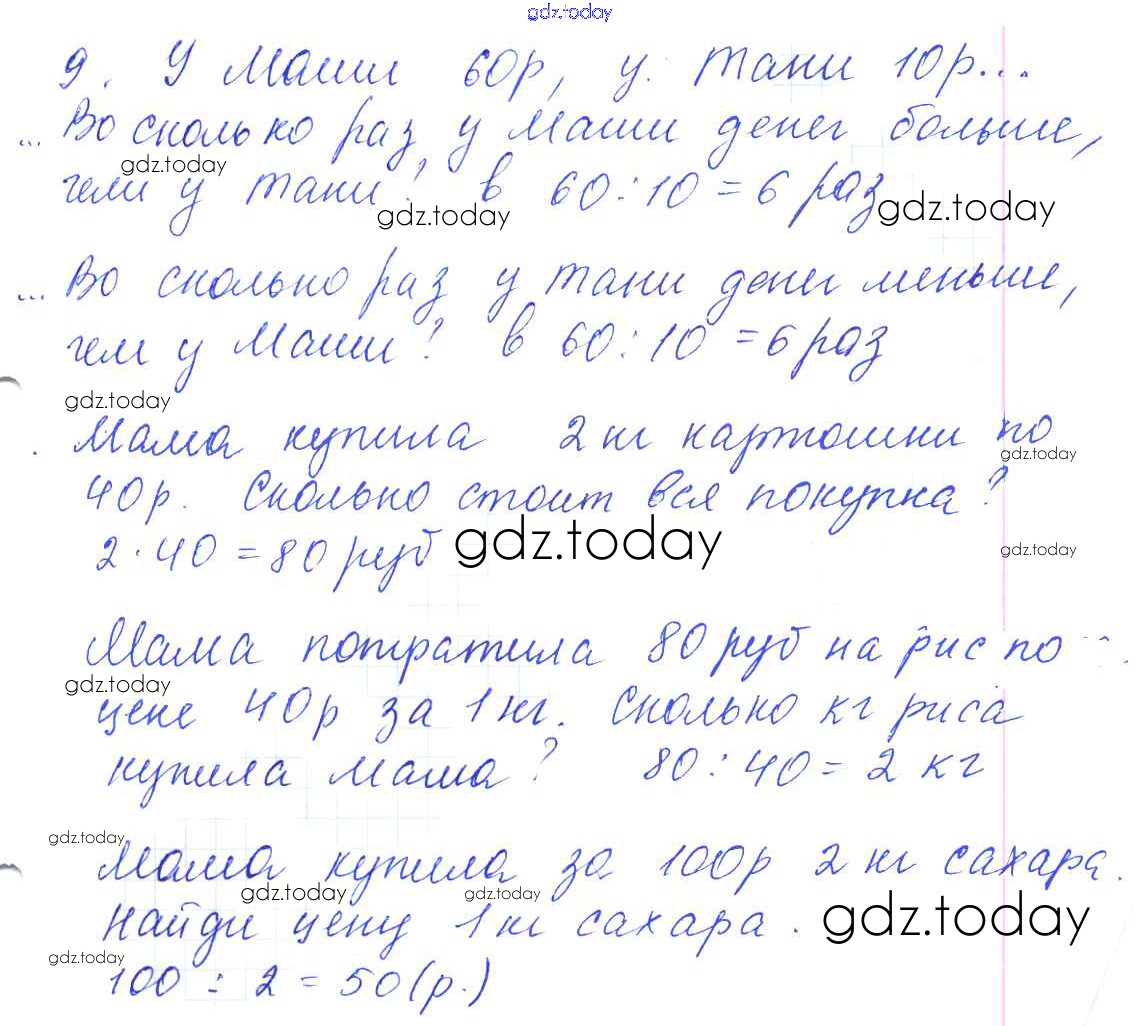 gdz.today
9. У Маши 60р, у Тани 10р...
... Во сколько раз у Маши денег больше,
gdz.today
чем у Тани? в 60:10=6 раз
gdz.today gdz.today
... Во сколько раз у Тани денег меньше,
чем у Маши? в 60:10=6 раз
gdz.today
. Мама купила 2 кг картошки по
gdz.today
40р. Сколько стоит вся покупка?
2·40=80 руб gdz.today gdz.today
Мама потратила 80 руб на рис по
gdz.today
цене 40р за 1 кг. Сколько кг риса
купила мама? 80:40=2 кг
gdz.today
Мама купила за 100р 2 кг сахара.
gdz.today gdz.today
Найди цену 1 кг сахара. gdz.today
gdz.today
100:2=50(р.)